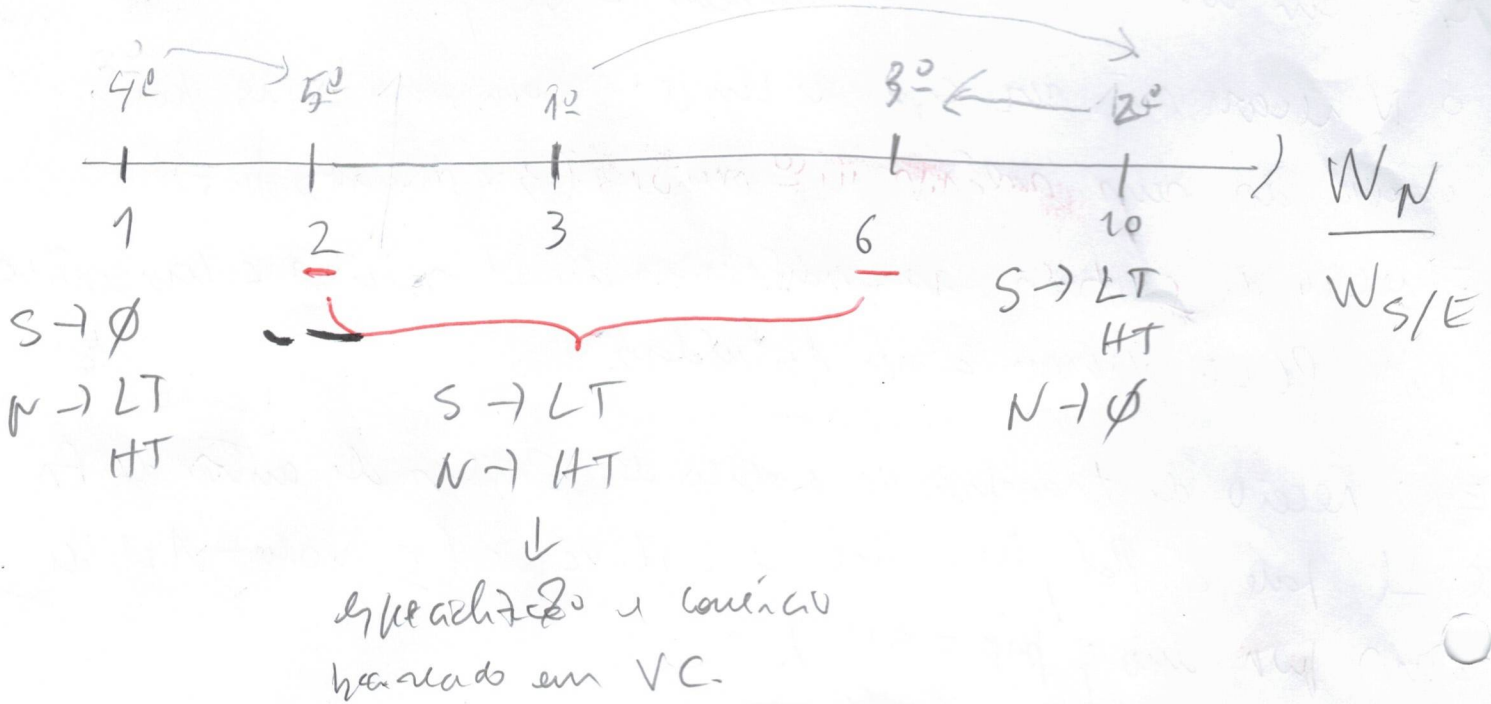 4º 5º 1º 3º 2º
1 2 3 6 10 W_N
W_S/E
S → LT
HT
N → ∅
S → ∅
N → LT
HT
S → LT
N → HT
↓
especialização e comércio
baseado em VC.